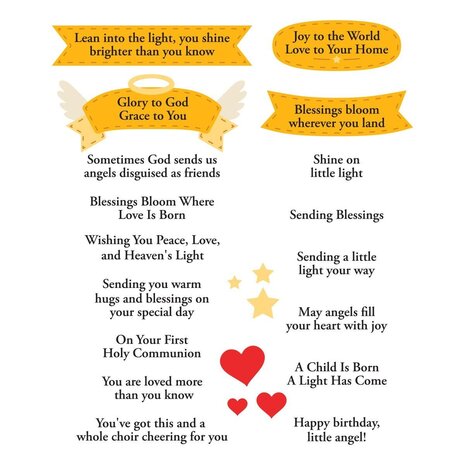 Lean into the light, you shine
brighter than you know
Joy to the World
Love to Your Home
Glory to God
Grace to You
Blessings bloom
wherever you land
Sometimes God sends us
angels disguised as friends
Shine on
little light
Blessings Bloom Where
Love Is Born
Sending Blessings
Wishing You Peace, Love,
and Heaven's Light
Sending a little
light your way
Sending you warm
hugs and blessings on
your special day
May angels fill
your heart with joy
On Your First
Holy Communion
A Child Is Born
A Light Has Come
You are loved more
than you know
You've got this and a
whole choir cheering for you
Happy birthday,
little angel!